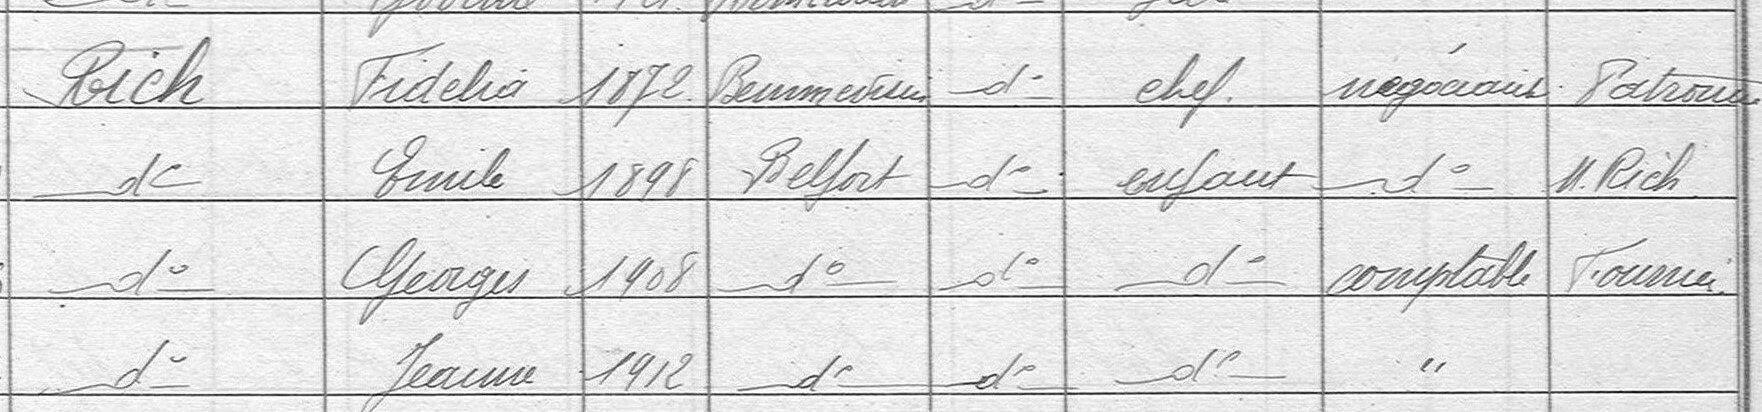 Rich Fidelia 1872 d° chef. négociant Patronne
d° Emile 1898 Belfort d° enfant d° M. Rich
d° Georges 1908 d° d° d° comptable Fournier
d° Jeanne 1912 d° d° d° "